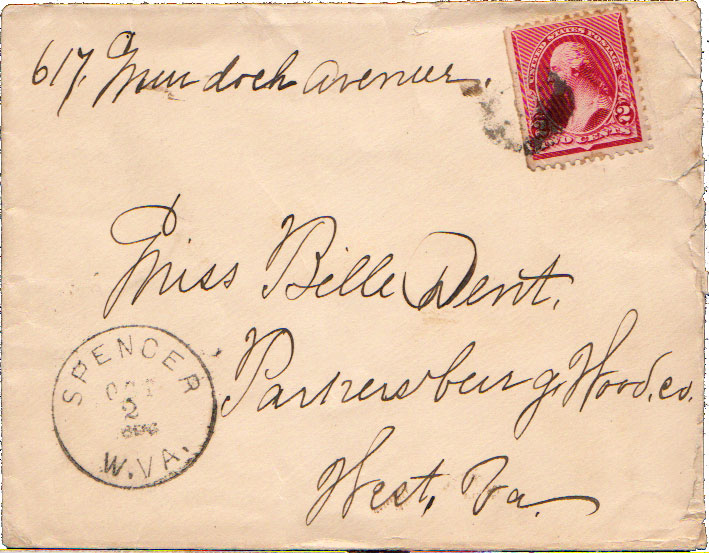 617, Murdoch Avenue.
UNITED STATES POSTAGE
2 2
TWO CENTS
Miss Belle Dent.
Parkersburg Wood. co.
West, Va.
SPENCER
OCT
2
W.VA.